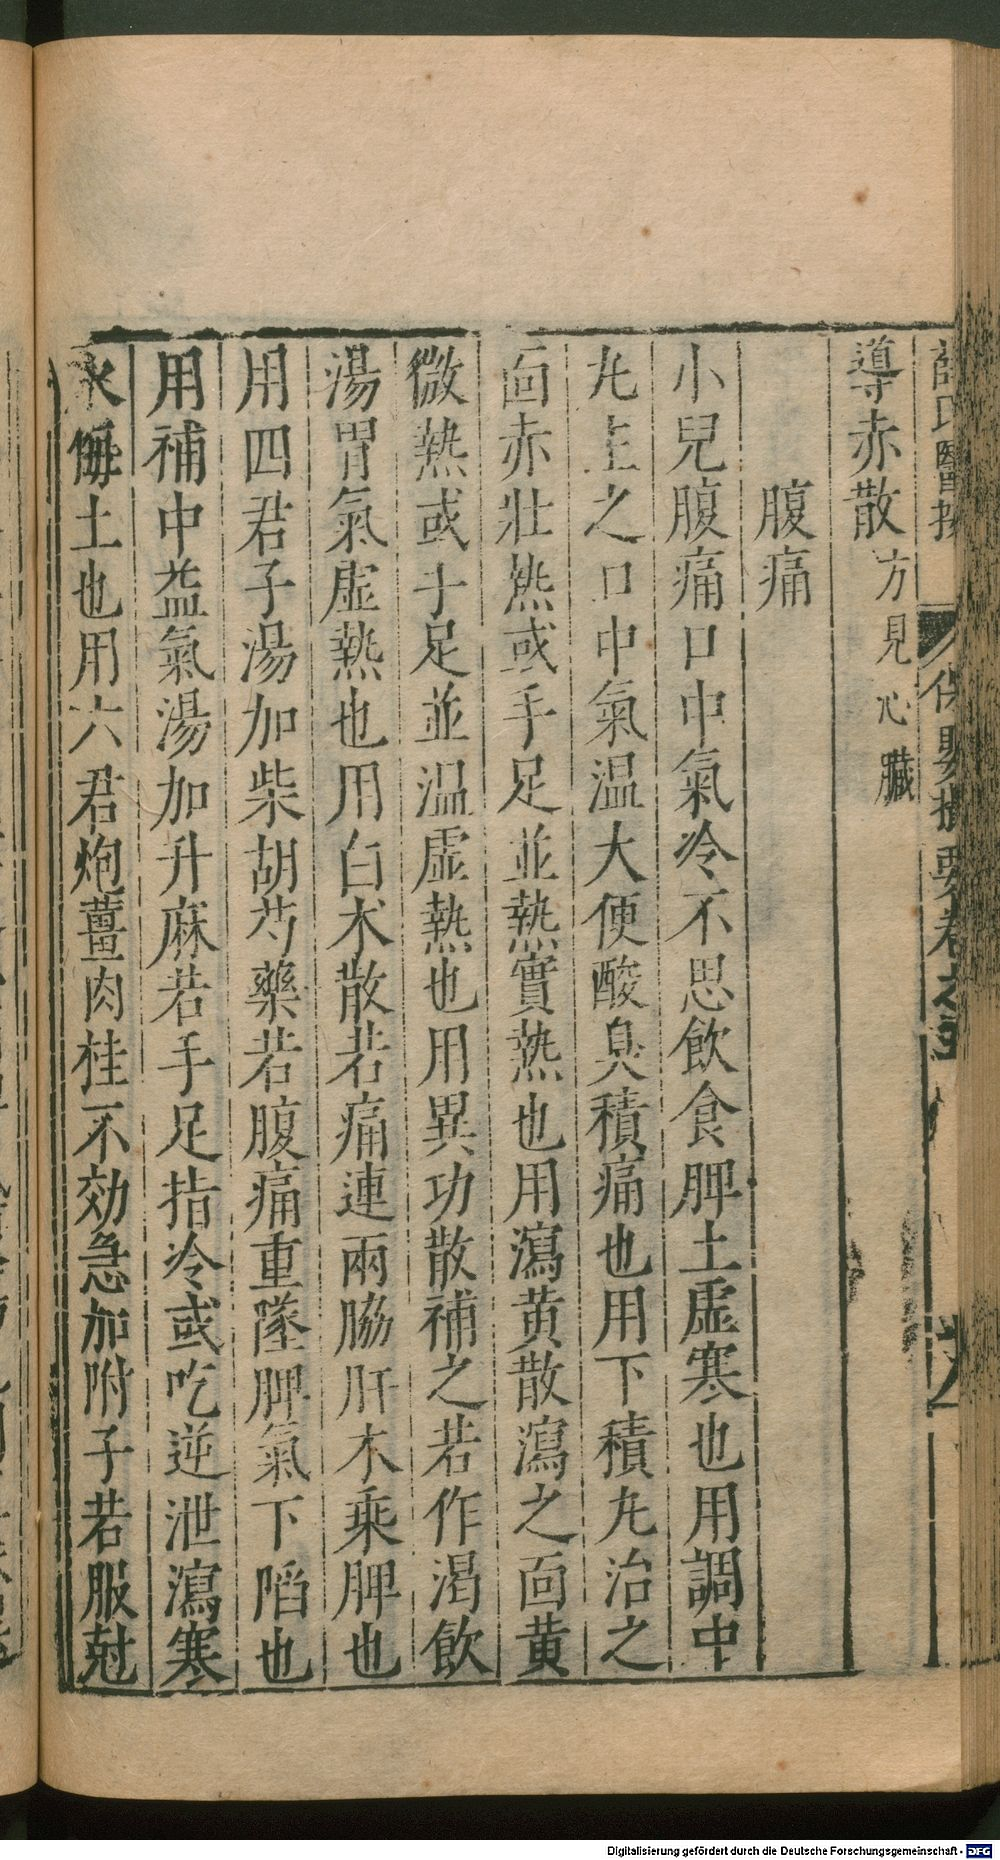 薛氏醫按 保嬰撮要卷之五
導赤散 方見心臟
腹痛
小兒腹痛口中氣冷不思飲食脾土虛寒也用調中
丸主之口中氣温大便酸臭積痛也用下積丸治之
面赤壯熱或手足並熱實熱也用瀉黄散瀉之面黄
微熱或手足並温虛熱也用異功散補之若作渴飲
湯胃氣虛熱也用白术散若痛連兩脇肝木乘脾也
用四君子湯加柴胡芍藥若腹痛重墜脾氣下陷也
用補中益氣湯加升麻若手足指冷或吃逆泄瀉寒
水侮土也用六君炮薑肉桂不効急加附子若服尅
Digitalisierung gefördert durch die Deutsche Forschungsgemeinschaft - DFG